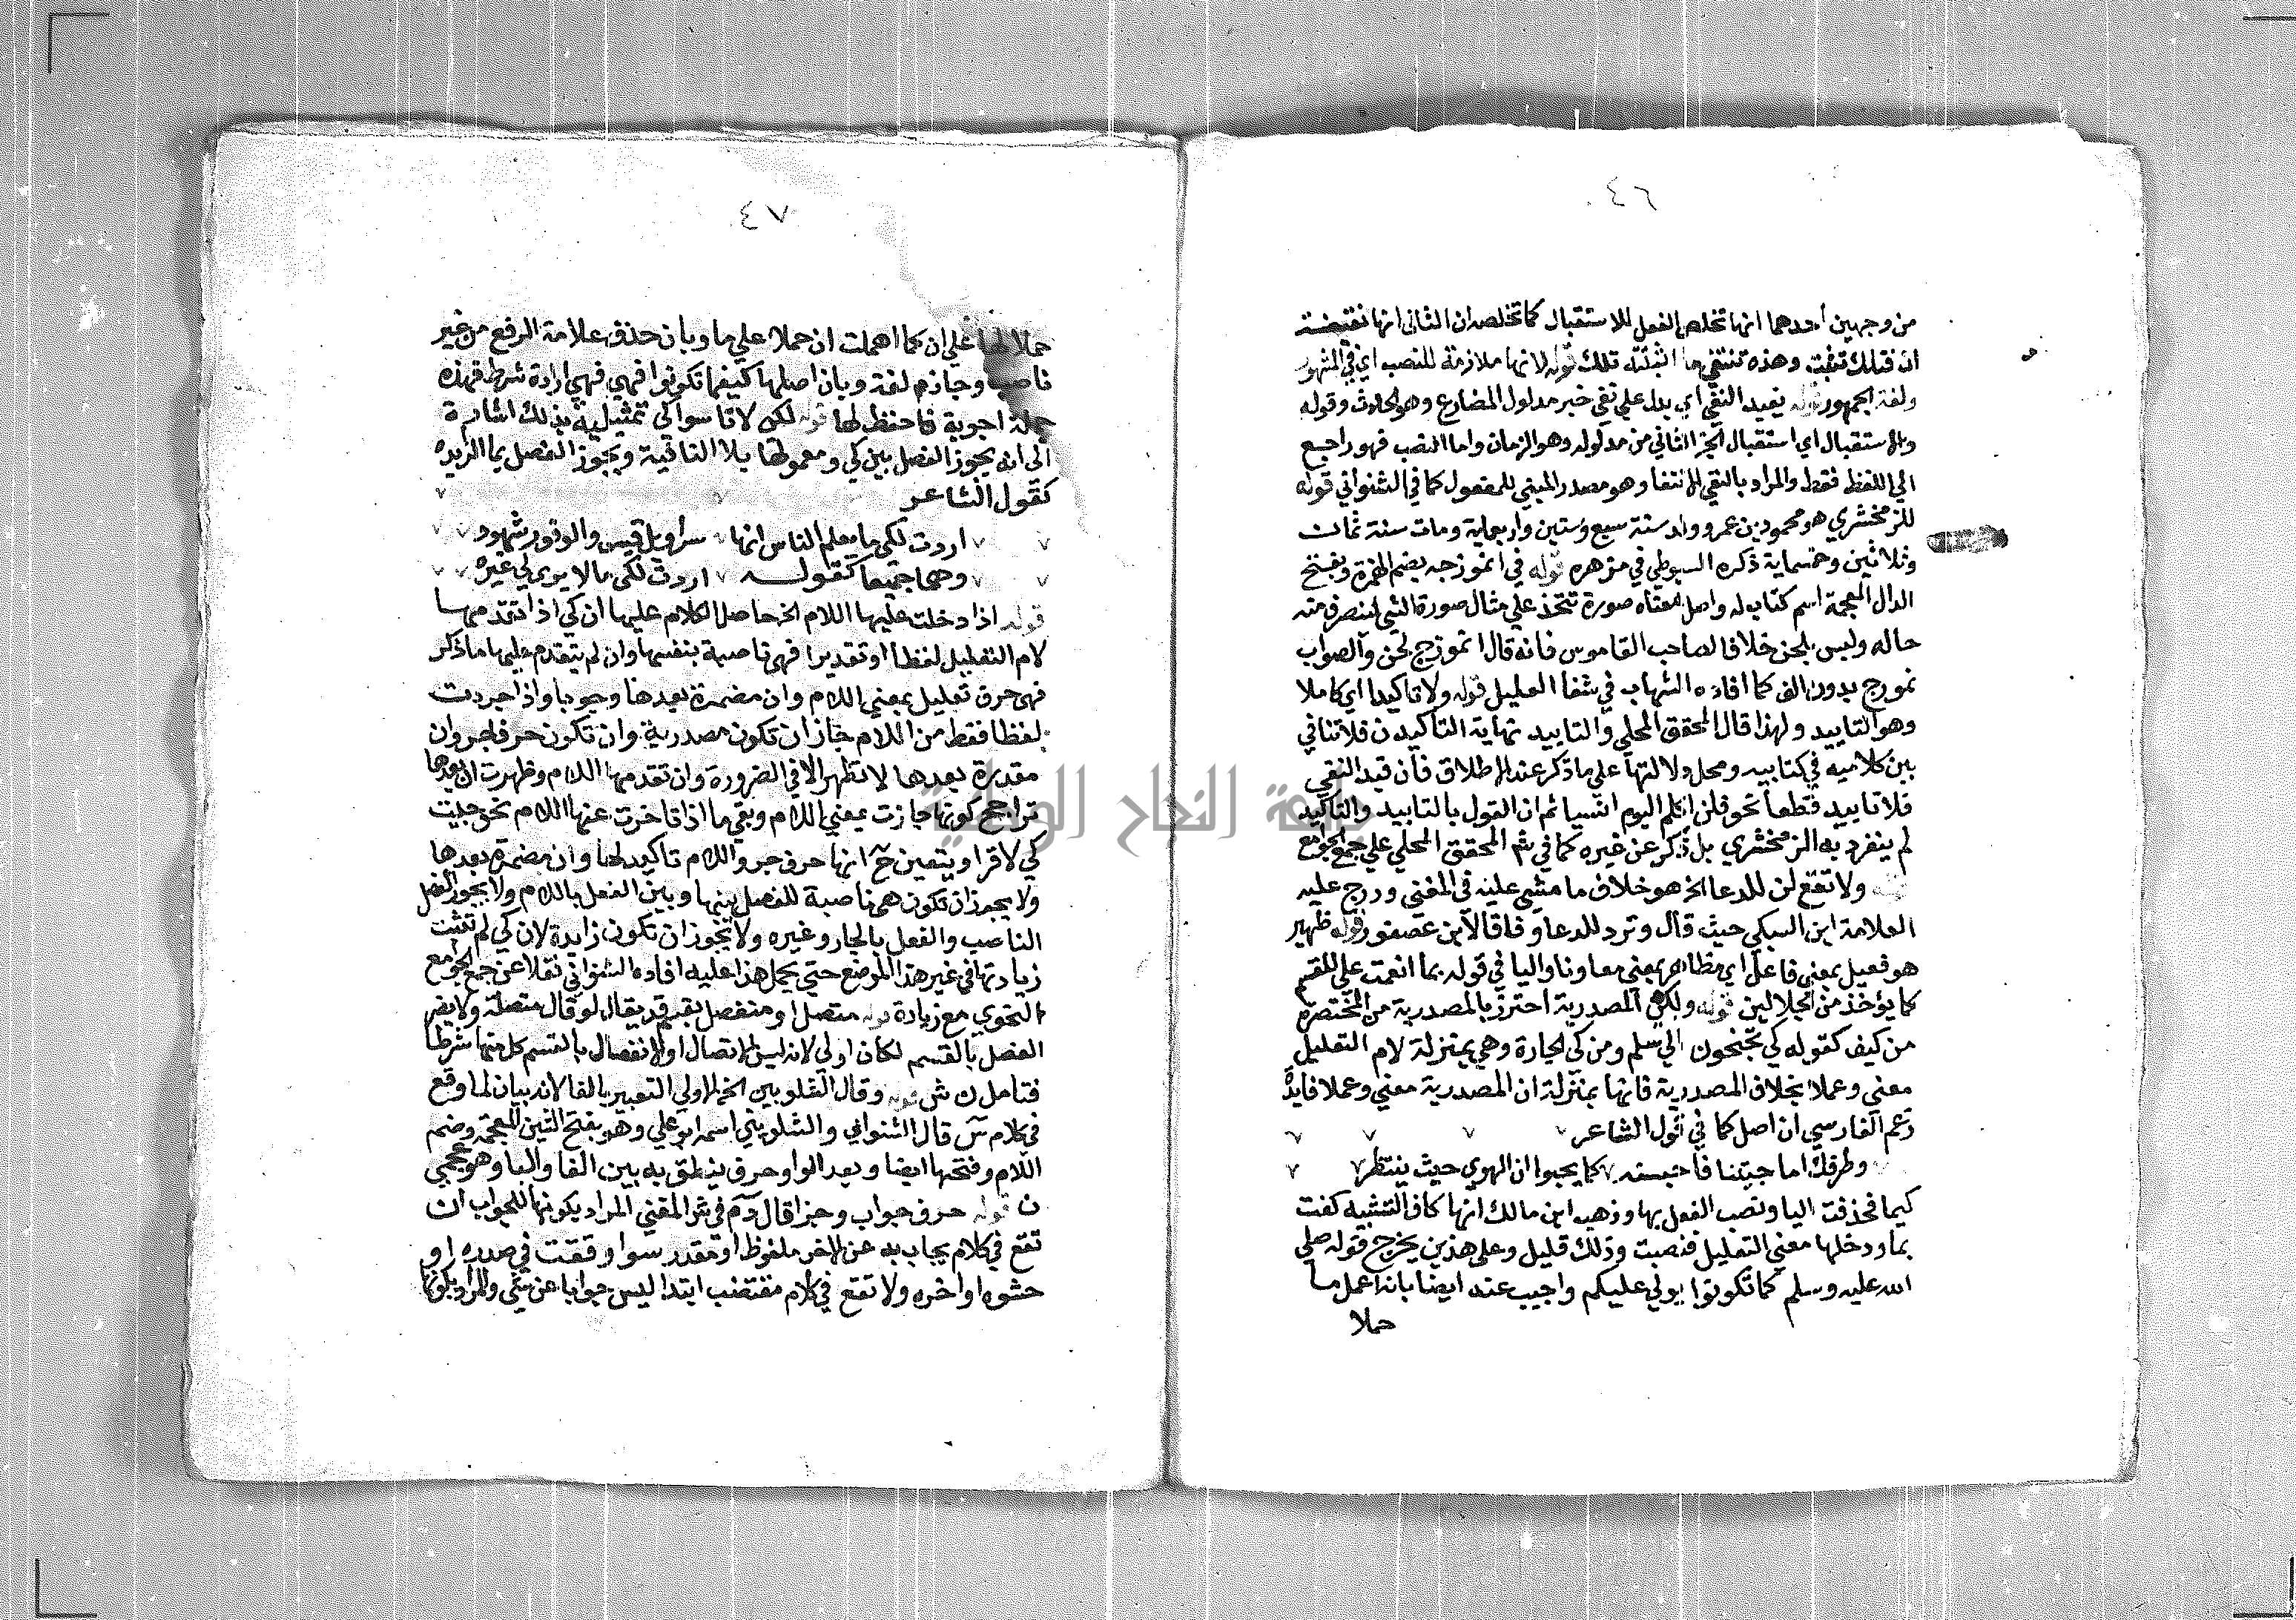 ٤٦
من وجهين احدهما انها تخلص الفعل للاستقبال كما تخلصه ان الثاني انها نقيضة
ان قبلك تثبت وهذه تنتفي ما اثبتته تلك قوله لانها ملازمة للنصب اي في المشهور
ولغة الجمهور قوله يفيد النفي اي يدل على نفي خبر مدلول المضارع وهو الحدث وقوله
والاستقبال اي استقبال الجزء الثاني من مدلوله وهو الزمان واما النصب فهو راجع
الى اللفظ فقط والمراد بالنفي الانتفا وهو مصدر المبني للمفعول كما في الشنواني قوله
للزمخشري هو محمود بن عمرو ولد سنة سبع وستين واربعماية ومات سنة ثمان
وثلاثين وخمسماية ذكره السيوطي في مزهره قوله في انموزجه بضم الهمزة وبفتح
الدال المعجمة اسم كتاب له واصل معناه صورة تتخذ على مثال صورة الشي لتصرف منه
حاله وليس بلحن خلافا لصاحب القاموس فانه قال انموزج لحن والصواب
نموزج بدون الف كما افاده الشهاب في شفا الغليل قوله ولا تاكيدا اي كاملا
وهو التابيد ولهذا قال المحقق المحلي والتابيد نهاية التاكيد ن فلا تنافي
بين كلاميه في كتابيه ومحل دلالتها على ما ذكر عند الاطلاق فان قيد النفي
فلا تابيد قطعا نحو فلن اكلم اليوم انسيا ثم ان القول بالتابيد والتاكيد
لم ينفرد به الزمخشري بل ذكر عن غيره كما في شم المحقق المحلي على جمع الجوامع
قوله ولا تقع لن للدعا الخ هو خلاف ما مشى عليه في المغني ودرج عليه
العلامة ابن السبكي حيث قال وترد للدعا وفاقا لابن عصفور قوله ظهير
هو فعيل بمعنى فاعل اي مظاهر بمعنى معاونا والبا في قوله بما انعمت علي للقسم
كما يؤخذ من الجلالين قوله ولكي المصدرية احترز بالمصدرية من المختصرة
من كيف كقوله كي تجنحون الى سلم ومن كي الجارة وهي بمنزلة لام التعليل
معنى وعملا بخلاف المصدرية فانها بمنزلة ان المصدرية معنى وعملا فايدة
زعم الفارسي ان اصل كما في قول الشاعر
وطرفك اما جيتنا فاحبسنه كما يحسبوا ان الهوى حيث ينتظر
كيما فحذفت اليا ونصب الفعل بها وذهب ابن مالك انها كاف التشبيه كفت
بما ودخلها معنى التعليل فنصبت وذلك قليل وعلى هذين يخرج قوله صلى
الله عليه وسلم كما تكونوا يولى عليكم واجيب عنه ايضا بانه اعمل ما
حملا
٤٧
حملا لها على ان كما اهملت ان حملا على ما وبان حذف علامة الرفع من غير
ناصب وجازم لغة وبان اصلها كيفما تكونوا فهي فهي اراة شرط فهذه
جملة اجوبة فاحفظ لها قوله لكي لا تاسوا كي تمثيلية بذلك اشارة
الى انه يجوز الفصل بين كي ومعمولها بلا النافية ويجوز الفصل بما الزيده
كقول الشاعر
اردت لكي ما يعلم الناس انها سراويل قيس والوفود شهود
وهما جميعا كقوله اردت لكي ما لا يرى لي غيره
قوله اذا دخلت عليها اللام الخ حاصل الكلام عليها ان كي اذا تقدمها
لام التعليل لفظا او تقديرا فهي ناصبة بنفسها وان لم يتقدم عليها ما ذكر
فهي حرف تعليل بمعنى اللام وان مضمرة بعدها وجوبا واذا جردت
لفظا فقط من اللام جاز ان تكون مصدرية وان تكون حرف جر وان
مقدرة بعدها لا تظهر الا في الضرورة وان تقدمها اللام وظهرت ان بعدها
تراجح كونها جازت بمعنى اللام وبقي ما اذا تاخرت عنها اللام نحو جيت
كي لاقرا ويتعين ح انها حرف جر واللام تاكيد لها وان مضمرة بعدها
ولا يجوز ان تكون هي ناصبة للفصل بينها وبين الفعل باللام ولا يجوز الفصل
الناصب والفعل بالجار وغيره ولا تجوز ان تكون زايدة لان كي لم تثبت
زيادتها في غير هذا الموضع حتى يحمل هذا عليه افاده الشنواني نقلا عن جمع الجوامع
النحوي مع زيادة قوله متصل او منفصل بقسم قد يقال لو قال متصلة ولا يضر
الفصل بالقسم لكان اولى لانه ليس الاتصال او الانفصال بالقسم كل منهما شرطا
فتامل ن ش قوله وقال الشلوبين الخ الاولى التعبير بالفا لانه بيان لما وقع
في كلام س قال الشنواني والشلوبيني اسمه ابو علي وهو بفتح الشين المعجمة وضم
اللام وفتحها ايضا وبعد الواو حرف ينطق به بين الفا والبا وهو عجمي
ن قوله حرف جواب وجزا قال دم في شر المغني المراد بكونها للجواب ان
تقع في كلام يجاب به عن الاخر ملفوظ او مقدر سوا وقعت في صدره او
حشوه او اخره ولا تقع في كلام مقتضب ابتدا ليس جوابا عن شي والمراد بكونها
جامعة النجاح الوطنية